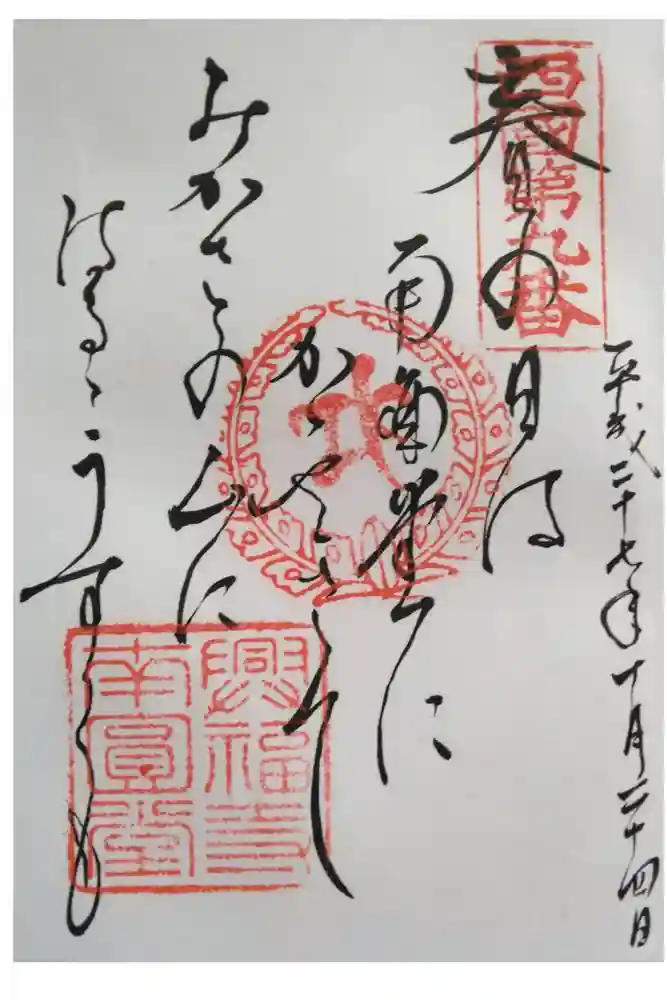 平成二十七年十月二十四日
西國第九番
春の日は
南圓堂に
かゝやきて
みかさの山に
はるゝうすくも
興福寺
南圓堂